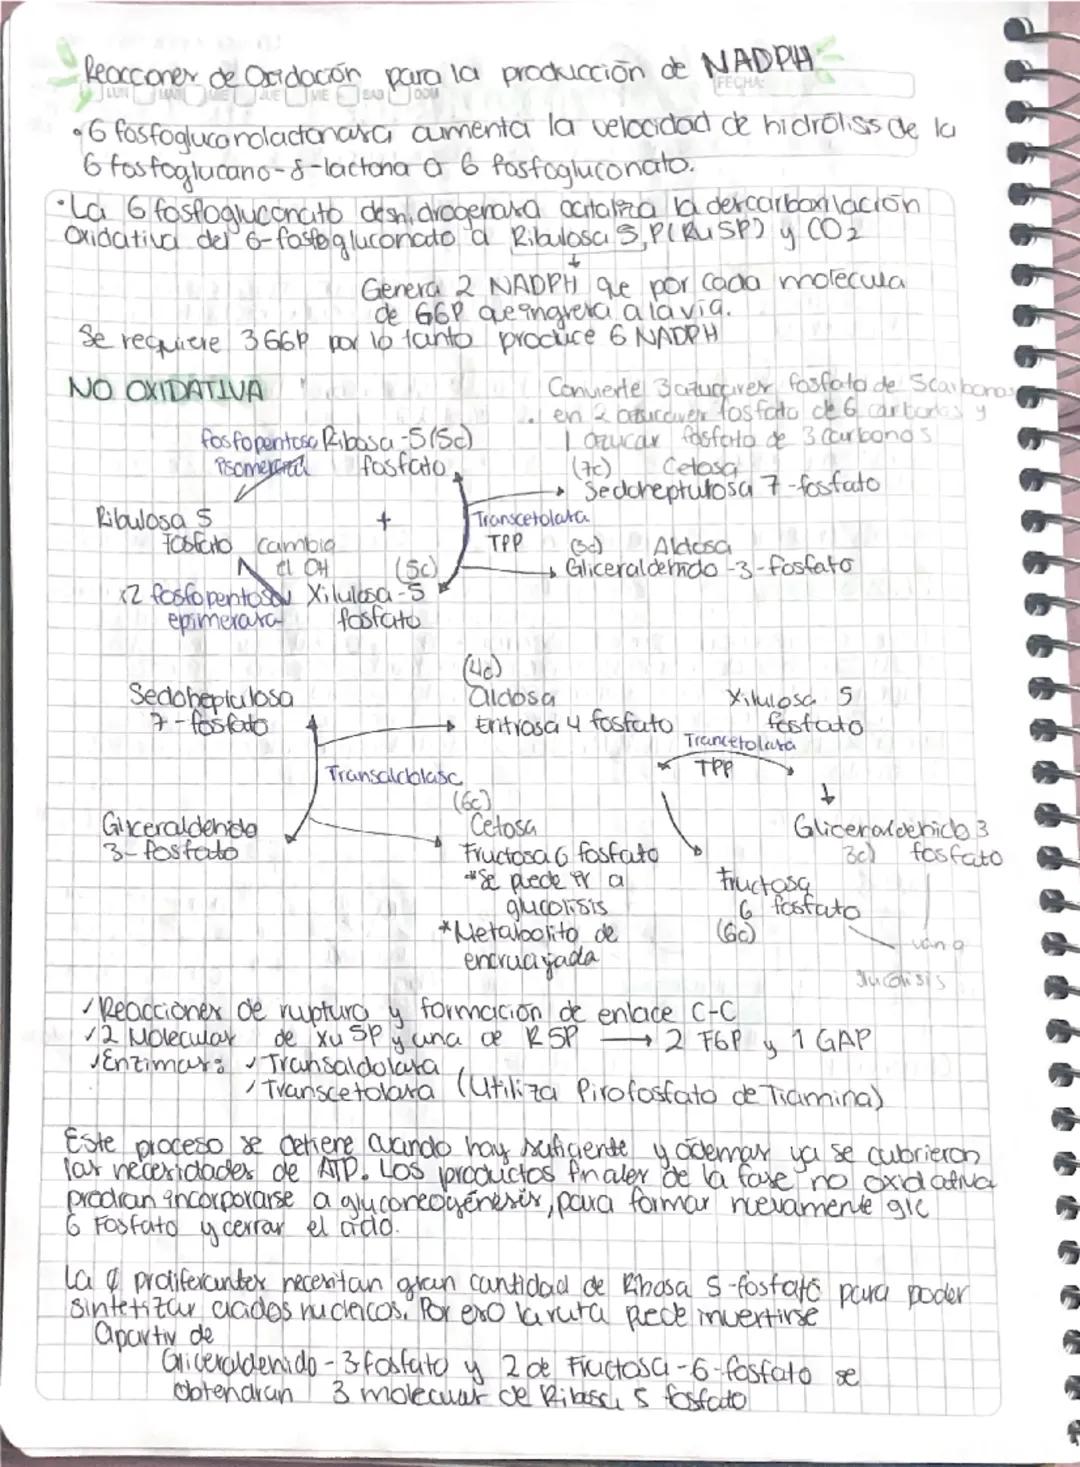 Reacciones de Oxidación para la producción de NADPH
LUN MAR MIE JUE VIE SAB DOM FECHA:
• 6 fosfogluconolactonasa aumenta la velocidad de hidrólisis de la
6 fosfoglucano-δ-lactona a 6 fosfogluconato.
• La 6 fosfogluconato deshidrogenasa cataliza la descarboxilación
Oxidativa del 6-fosfogluconato a Ribulosa 5,P(Ru5P) y CO2
↓
Genera 2 NADPH que por cada molécula
de G6P que ingresa a la vía.
Se requiere 3 G6P por lo tanto produce 6 NADPH
NO OXIDATIVA
Convierte 3 azucares fosfato de 5 carbonos
en 2 azucares fosfato de 6 carbonos y
1 azucar fosfato de 3 carbonos
fosfopentosa Ribosa-5 (5c)
isomerasa fosfato
(7c) Cetosa
Sedoheptulosa 7-fosfato
Ribulosa 5
fosfato cambia
el OH
+
Transcetolasa
TPP
(3c) Aldosa
Gliceraldehido-3-fosfato
(5c)
x2 fosfopentosa Xilulosa-5
epimerasa fosfato
(4c)
Sedoheptulosa Aldosa Xilulosa 5
7-fosfato Eritrosa 4 fosfato fosfato
Trancetolasa
TPP
Transaldolasa
(6c)
Gliceraldehido Cetosa Gliceraldehido 3
3-fosfato Fructosa 6 fosfato 3c) fosfato
*Se puede ir a
glucolisis
Fructosa
6 fosfato
(6c)
*Metabolito de
encrucijada
van a
glucolisis
✓Reacciones de ruptura y formación de enlace C-C
✓2 Moleculas de Xu5P y una de R5P → 2 F6P y 1 GAP
✓Enzimas: ✓Transaldolasa
✓Transcetolasa (Utiliza Pirofosfato de Tiamina)
Este proceso se detiene cuando hay suficiente y ademas ya se cubrieron
las necesidades de ATP. Los productos finales de la fase no oxidativa
prodran incorporarse a gluconeogénesis, para formar nuevamente glc
6 Fosfato y cerrar el ciclo.
La ¢ proliferantes necesitan gran cantidad de Ribosa 5-fosfato para poder
sintetizar acidos nucleicos. Por eso la ruta puede invertirse
apartir de
Gliceraldehido-3 fosfato y 2 de Fructosa-6-fosfato se
obtendran 3 moleculas de Ribosa 5 fosfato